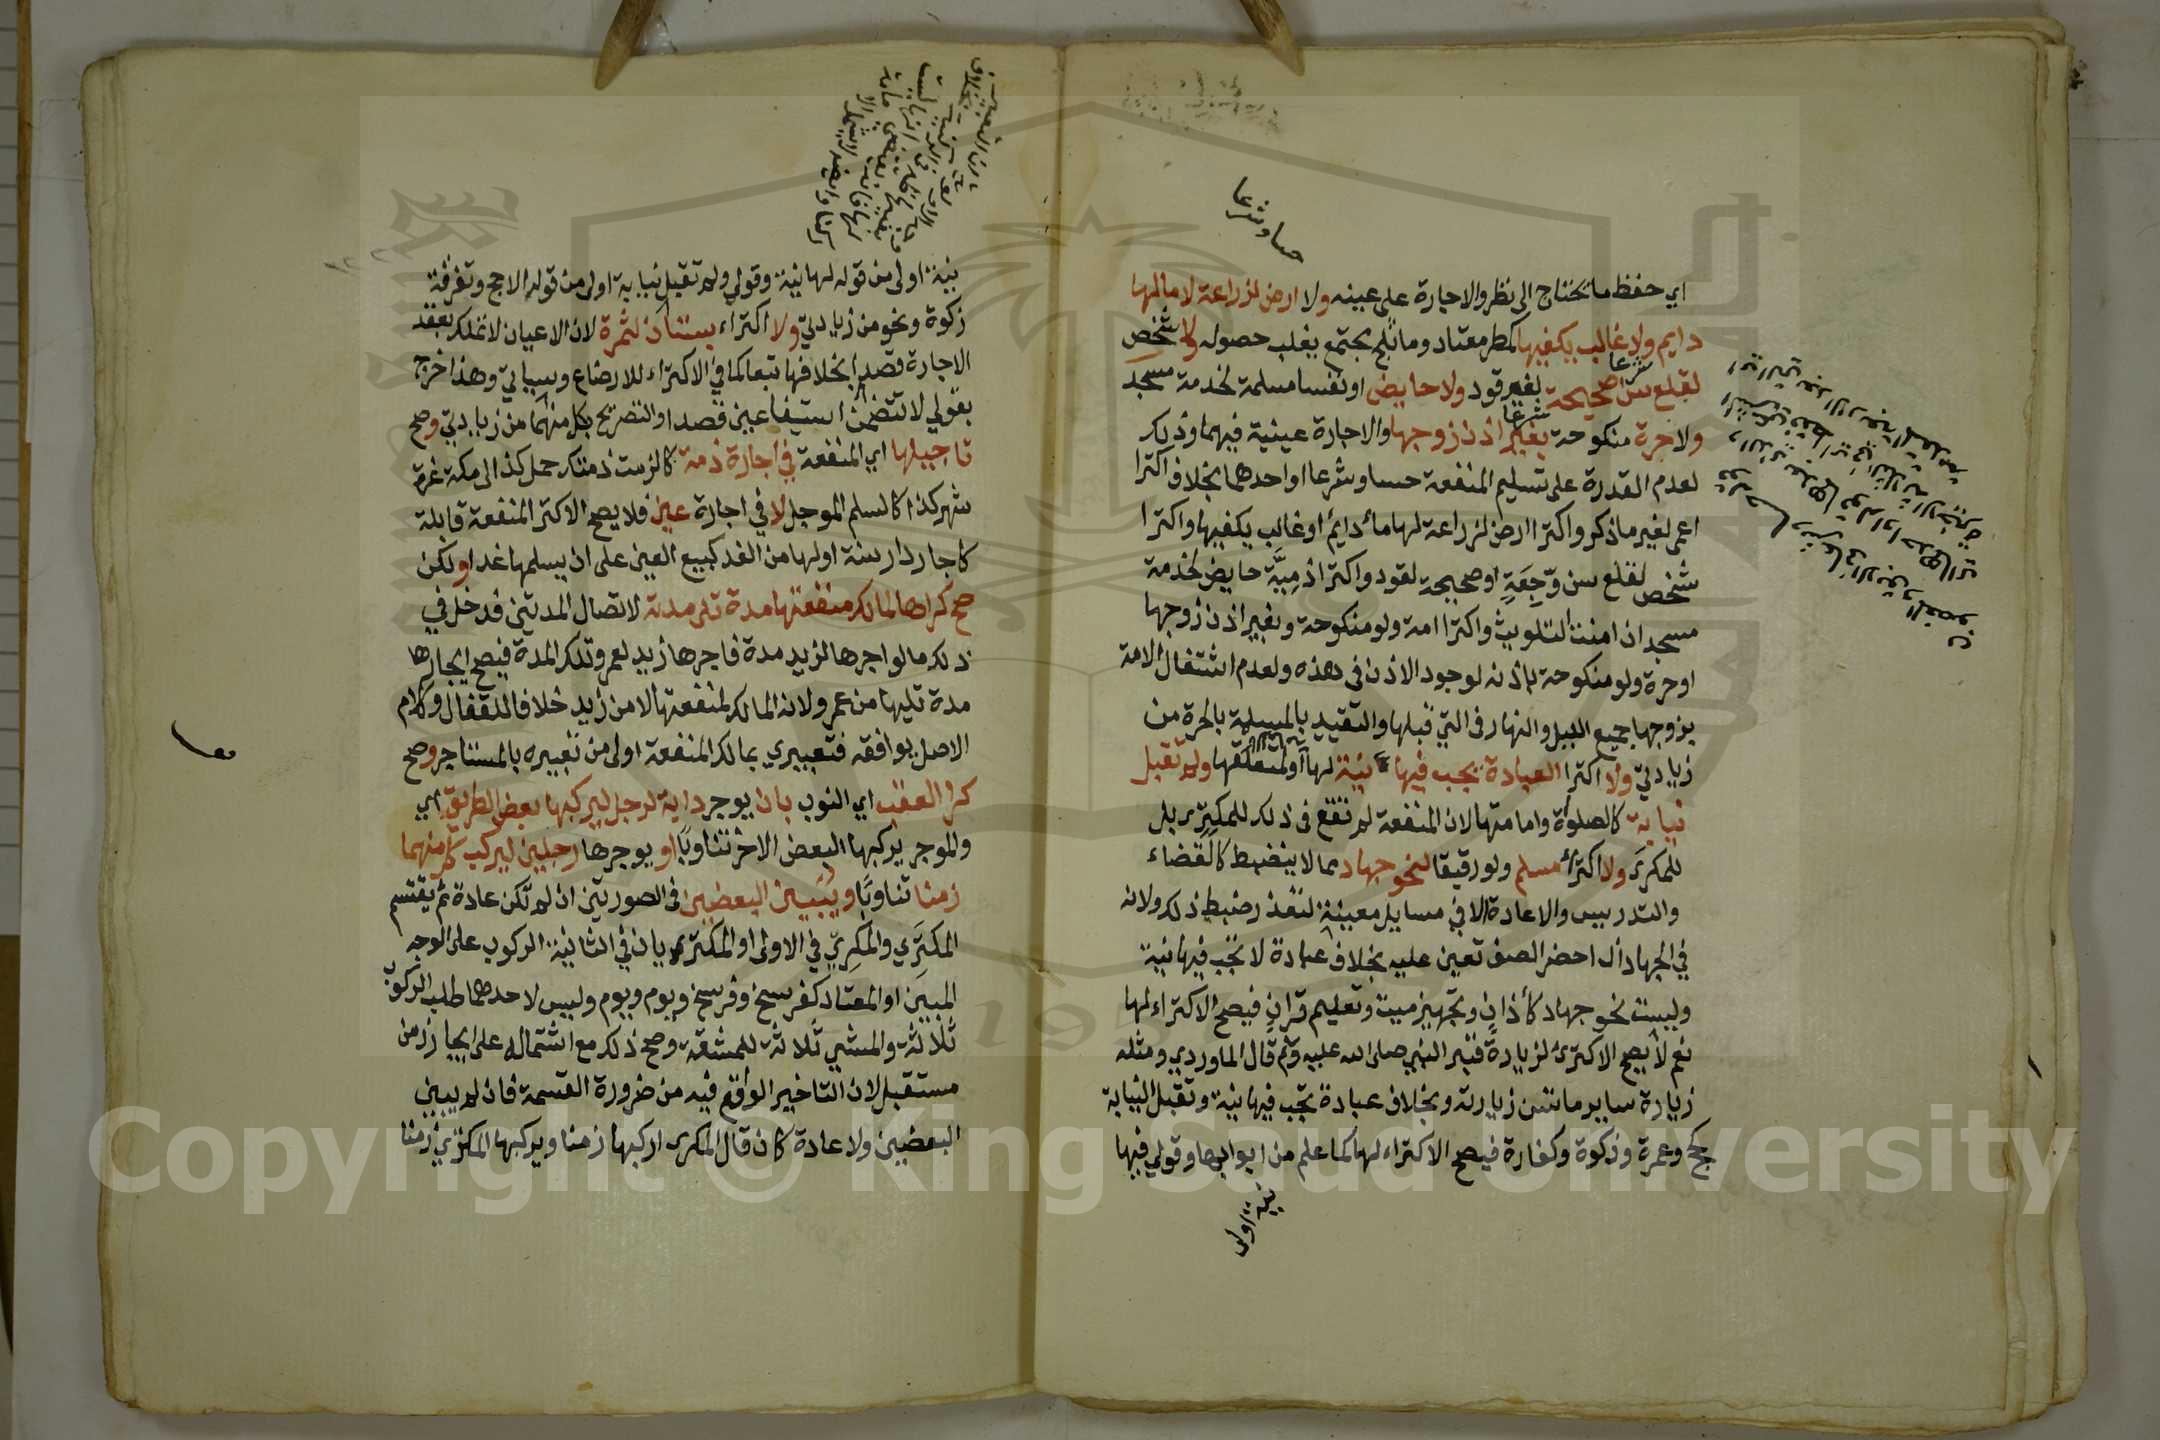 حسا وشرعا
اي حفظ ما يحتاج الى نظر والاجارة على عينه ولا ارض لزراعة لا ما لها
دايم ولا غالب يكفيها كمطر معتاد وماثلج يجتمع يغلب حصوله ولا شخص
لقلع سن صحيحة بغير قود ولا حايض او نفسا مسلمة لخدمة مسجد
ولا حرة منكوحة بغير اذن زوجها والاجارة عينية فيهما وذلك
لعدم القدرة على تسليم المنفعة حسا وشرعا او احدهما بخلاف اكترا
اعمى لغير ما ذكر واكترا ارض لزراعة لها ماء دايم او غالب يكفيها واكترا
شخص لقلع سن وجعة او صحيحة لقود واكترا ذمية حايض لخدمة
مسجد ان امنت التلويث واكترا امة ولو منكوحة وبغير اذن زوجها
او حرة ولو منكوحة باذنه لوجود الاذن في هذه ولعدم اشتغال الامة
بزوجها جميع الليل والنهار في التي قبلها والتقييد بالمسلمة بالحرة من
زيادتي ولا اكترا العبادة يجب فيها نية لها او لمتعلقها ولم تقبل
نيابة كالصلوة وامامتها لان المنفعة لم تقع في ذلك للمكتري بل
للمكرى ولا اكتراء مسلم ولو رقيقا لنحو جهاد مما لا ينضبط كالقضاء
والتدريس والاعادة الا في مسايل معينة لتعذر ضبط ذلك ولانه
في الجهاد اذا احضر الصف تعين عليه بخلاف عبادة لا تجب فيها نية
وليست نحو جهاد كأذان وتجهيز ميت وتعليم قران فيصح الاكتراء لها
نعم لا يصح الاكترى لزيارة قبر النبي صلى الله عليه وسلم قال الماوردي ومثله
زيارة ساير ما تسن زيارته وبخلاف عبادة تجب فيها نية وتقبل النيابة
كحج وعمرة وزكوة وكفارة فيصح الاكتراء لها كما علم من ابوابها وقولي فيها
نية اولى
نية اولى من قوله لها نية وقولي ولم تقبل نيابة اولى من قوله الا حج وتفرقة
زكوة ونحو من زيادتي ولا اكتراء بستان لثمرة لان الاعيان لا تملك بعقد
الاجارة قصدا بخلافها تبعا كما في الاكتراء للارضاع وسياتي وهذا خرج
بقولي لا تتضمن استيفا عين قصدا والتصريح بكل منهما من زيادتي وصح
تاجيلها اي المنفعة في اجارة ذمة كالزمت ذمتك حمل كذا الى مكة غرة
شهر كذا كالسلم الموجل لا في اجارة عين فلا يصح الاكترا لمنفعة قابلة
كاجار دار سنة اولها من الغد كبيع العين على ان يسلمها غدا ولكن
صح كراها لمالك منفعتها مدة تلى مدته لاتصال المدتين فدخل في
ذلك ما لو اجرها لزيد مدة فاجرها زيد لعمرو تلك المدة فيصح ايجارها
مدة تليها من عمرو لانه المالك لمنفعتها لا من زيد خلافا للقفال وكلام
الاصل يوافقه فتعبيري بمالك المنفعة اولى من تعبيره بالمستاجر وصح
كرا العقب اي النوب بان يوجر دابة لرجل ليركبها بعض الطريق اي
والموجر يركبها البعض الاخر تناوبا او يوجرها رجلين ليركب كل منهما
زمنا تناوبا ويبين البعضين في الصورتين ان لم تكن عادة ثم يقتسم
المكتري والمكري في الاولى او المكتريان في الثانية الركوب على الوجه
المبين او المعتاد كفرسخ وفرسخ ويوم ويوم وليس لاحدهما طلب الركوب
ثلاثة والمشي ثلاثة للمشقة وصح ذلك مع اشتماله على ايجار زمن
مستقبل لان التاخير الواقع فيه من ضرورة القسمة فان لم يبين
البعضين ولا عادة كان قال المكرى اركبها زمنا ويركبها المكتري زمنا
Copyright © King Saud University